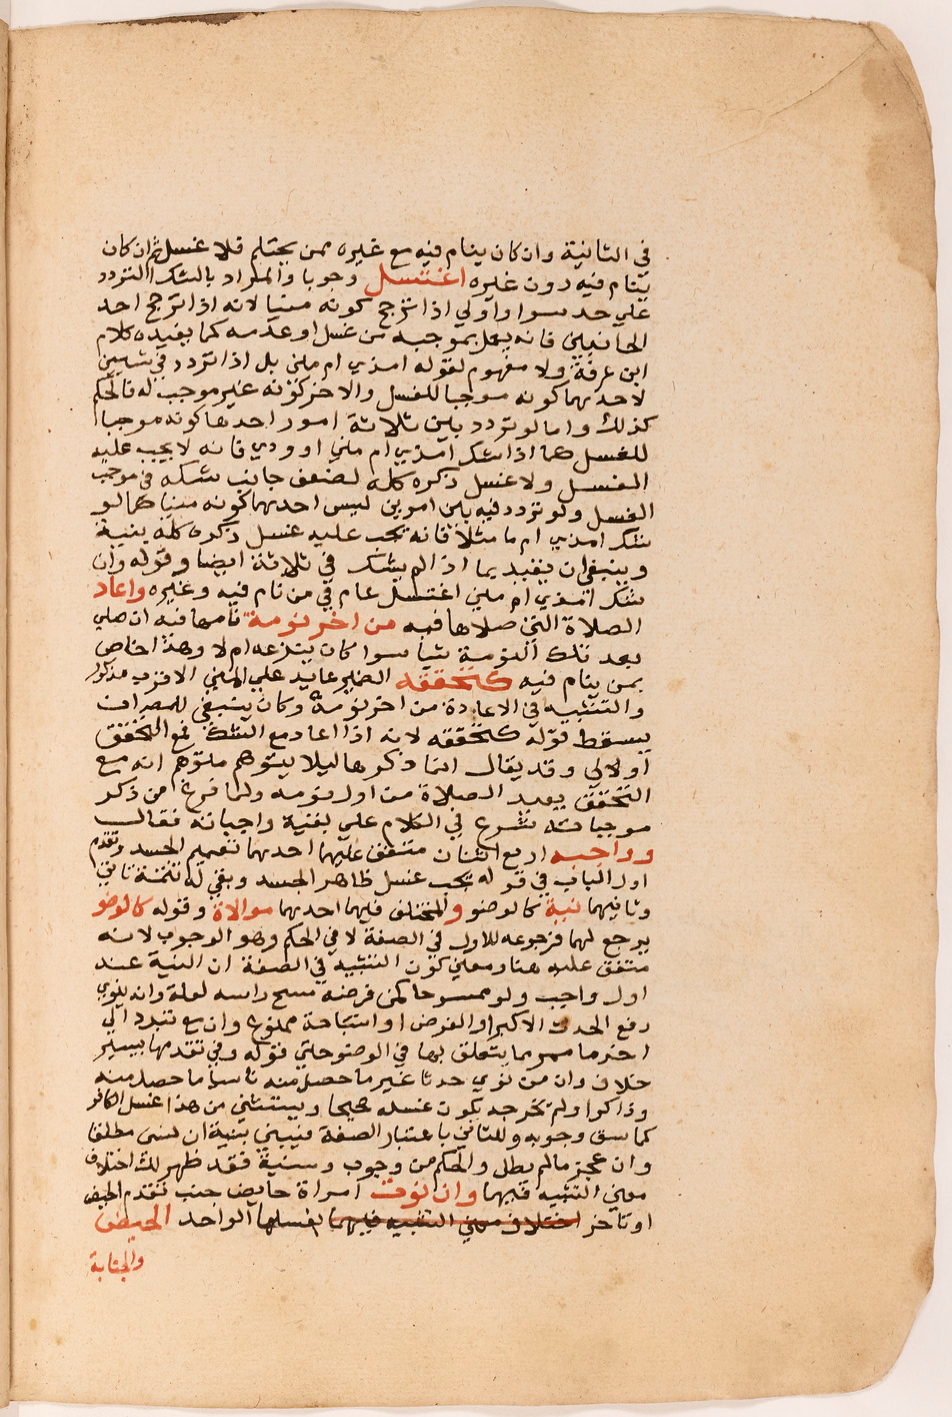 في الثانية وان كان ينام فيه مع غيره ممن يحتلم فلا غسل ثم ان كان
ينام فيه دون غيره اغتسل وجوبا والمراد بالشك التردد
علي حد سوا واولي اذا ترجح كونه منيا لانه اذا ترجح احد
الجانبين فانه يعمل بموجبه من غسل او عدمه كما يفيده كلام
ابن عرفة ولا مفهوم لقوله امذي ام مني بل اذا تردد في شيين
لاحدهما كونه موجبا للغسل والاخر كونه غير موجب له فالحكم
كذلك واما لو تردد بين ثلاثة امور احدها كونه موجبا
للغسل كما اذا شك امذي ام مني او ودي فانه لا يجب عليه
الغسل ولا غسل ذكره كله لضعف جانب شكه في موجب
الغسل ولو تردد فيه بين امرين ليس احدهما كونه منيا كما لو
شك امذي ام ما مثلا فانه يجب عليه غسل ذكره كله بنية
وينبغي ان يقيد بما اذا لم يشك في ثلاثة ايضا وقوله وان
شك امذي ام مني اغتسل عام في من نام فيه وغيره واعاد
الصلاة التي صلاها فيه من اخر نومة نامها فيه ان صلي
بعد تلك النومة شيا سوا كان ينزعه ام لا وهذا خاص
بمن ينام فيه كتحققه الضمير عايد علي المني الاقرب مذكور
والتشبيه في الاعادة من اخر نومة وكان ينبغي للمصنف ان
يسقط قوله كتحققه لانه اذا اعاد مع الشك فمع التحقق
اولي وقد يقال انما ذكرها ليلا يتوهم متوهم انه مع
التحقق يعيد الصلاة من اول نومه ولما فرغ من ذكر
موجباته شرع في الكلام علي بقية واجباته فقال
وواجبه اربع اثنان متفق عليهما احدهما تعميم الجسد وتقدم
اول الباب في قوله يجب غسل ظاهر الجسد وبقي له تتمة تاتي
وثانيهما نية كالوضو والمختلف فيهما احدهما موالاة وقوله كالوضو
يرجع لهما فرجوعه للاول في الصفة لا في الحكم وهو الوجوب لانه
متفق عليه هنا ومعني كون التشبيه في الصفة ان النية عند
اول واجب ولو ممسوحا كمن فرضه مسح راسه لعلة وانه ينوي
رفع الحدث الاكبر او الفرض او استباحة ممنوع وان مع تبرد الي
اخر ما مر مما يتعلق بها في الوضو حتي قوله وفي تقدمها بيسير
خلاف وان من نوي حدثا غير ما حصل منه ناسيا ما حصل منه
وذاكرا ولم يخرجه يكون غسله صحيحا ويستثني من هذا غسل الكافر
كما سبق وجوبه وللثاني باعتبار الصفة فيبني بنية ان نسي مطلقا
وان عجز ما لم يطل والحكم من وجوب وسنية فقد ظهر لك اختلاف
معني التشبيه فيهما وان نوت امراة حايض جنب تقدم الحيض
او تاخر اختلاف معني التشبيه فيهما بغسلها الواحد الحيض
والجنابة